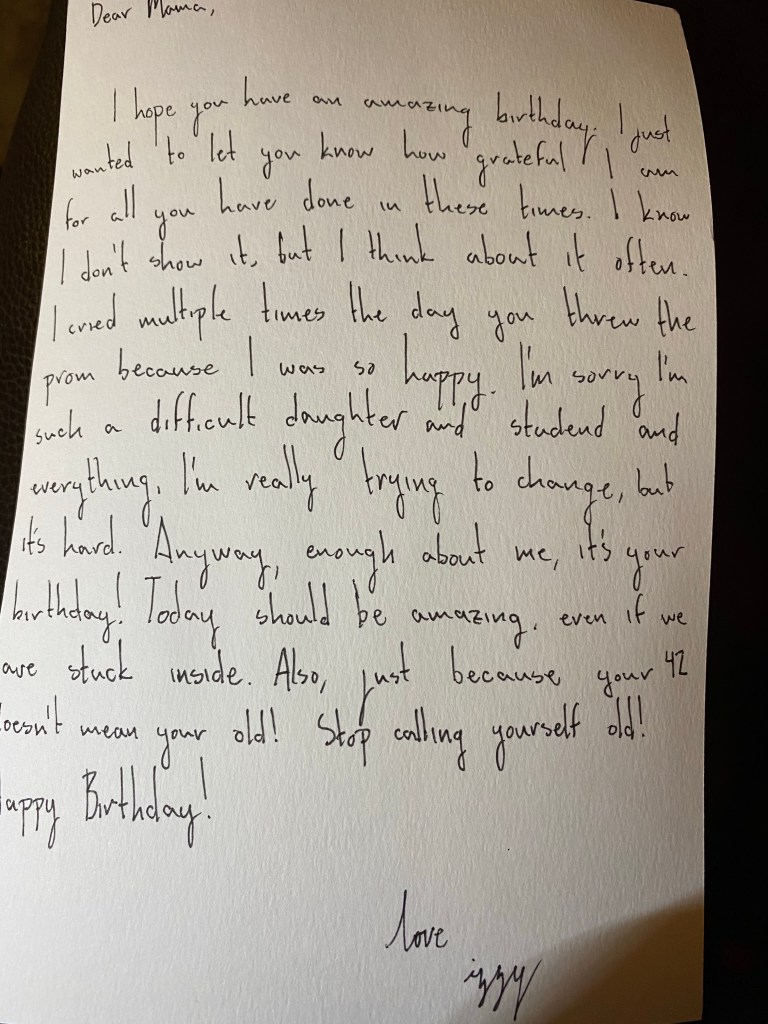 Dear Mama,
I hope you have an amazing birthday. I just
wanted to let you know how grateful I am
for all you have done in these times. I know
I don't show it, but I think about it often.
I cried multiple times the day you threw the
prom because I was so happy. I'm sorry I'm
such a difficult daughter and studend and
everything, I'm really trying to change, but
it's hard. Anyway, enough about me, it's your
birthday! Today should be amazing, even if we
are stuck inside. Also, just because your 42
oesn't mean your old! Stop calling yourself old!
appy Birthday!
love
izzy